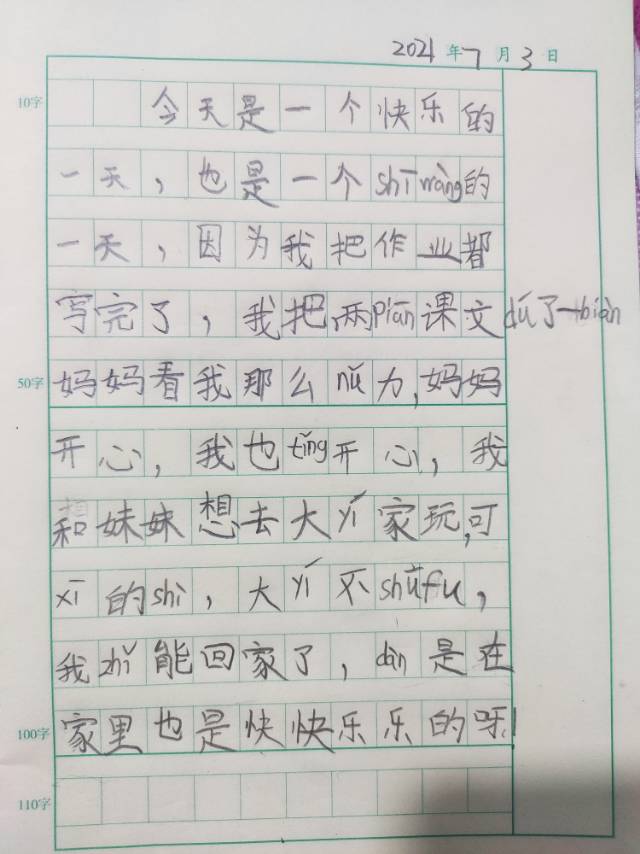 2021年7月3日
10字
今天是一个快乐的
一天，也是一个shīwàng的
一天，因为我把作业都
写完了，我把两piān课文dú了一biàn
50字
妈妈看我那么nǔ力，妈妈
开心，我也tǐng开心，我
和妹妹想去大yí家玩，可
xī的shì，大yí不shūfu，
我zhǐ能回家了，dàn是在
100字
家里也是快快乐乐的呀！
110字